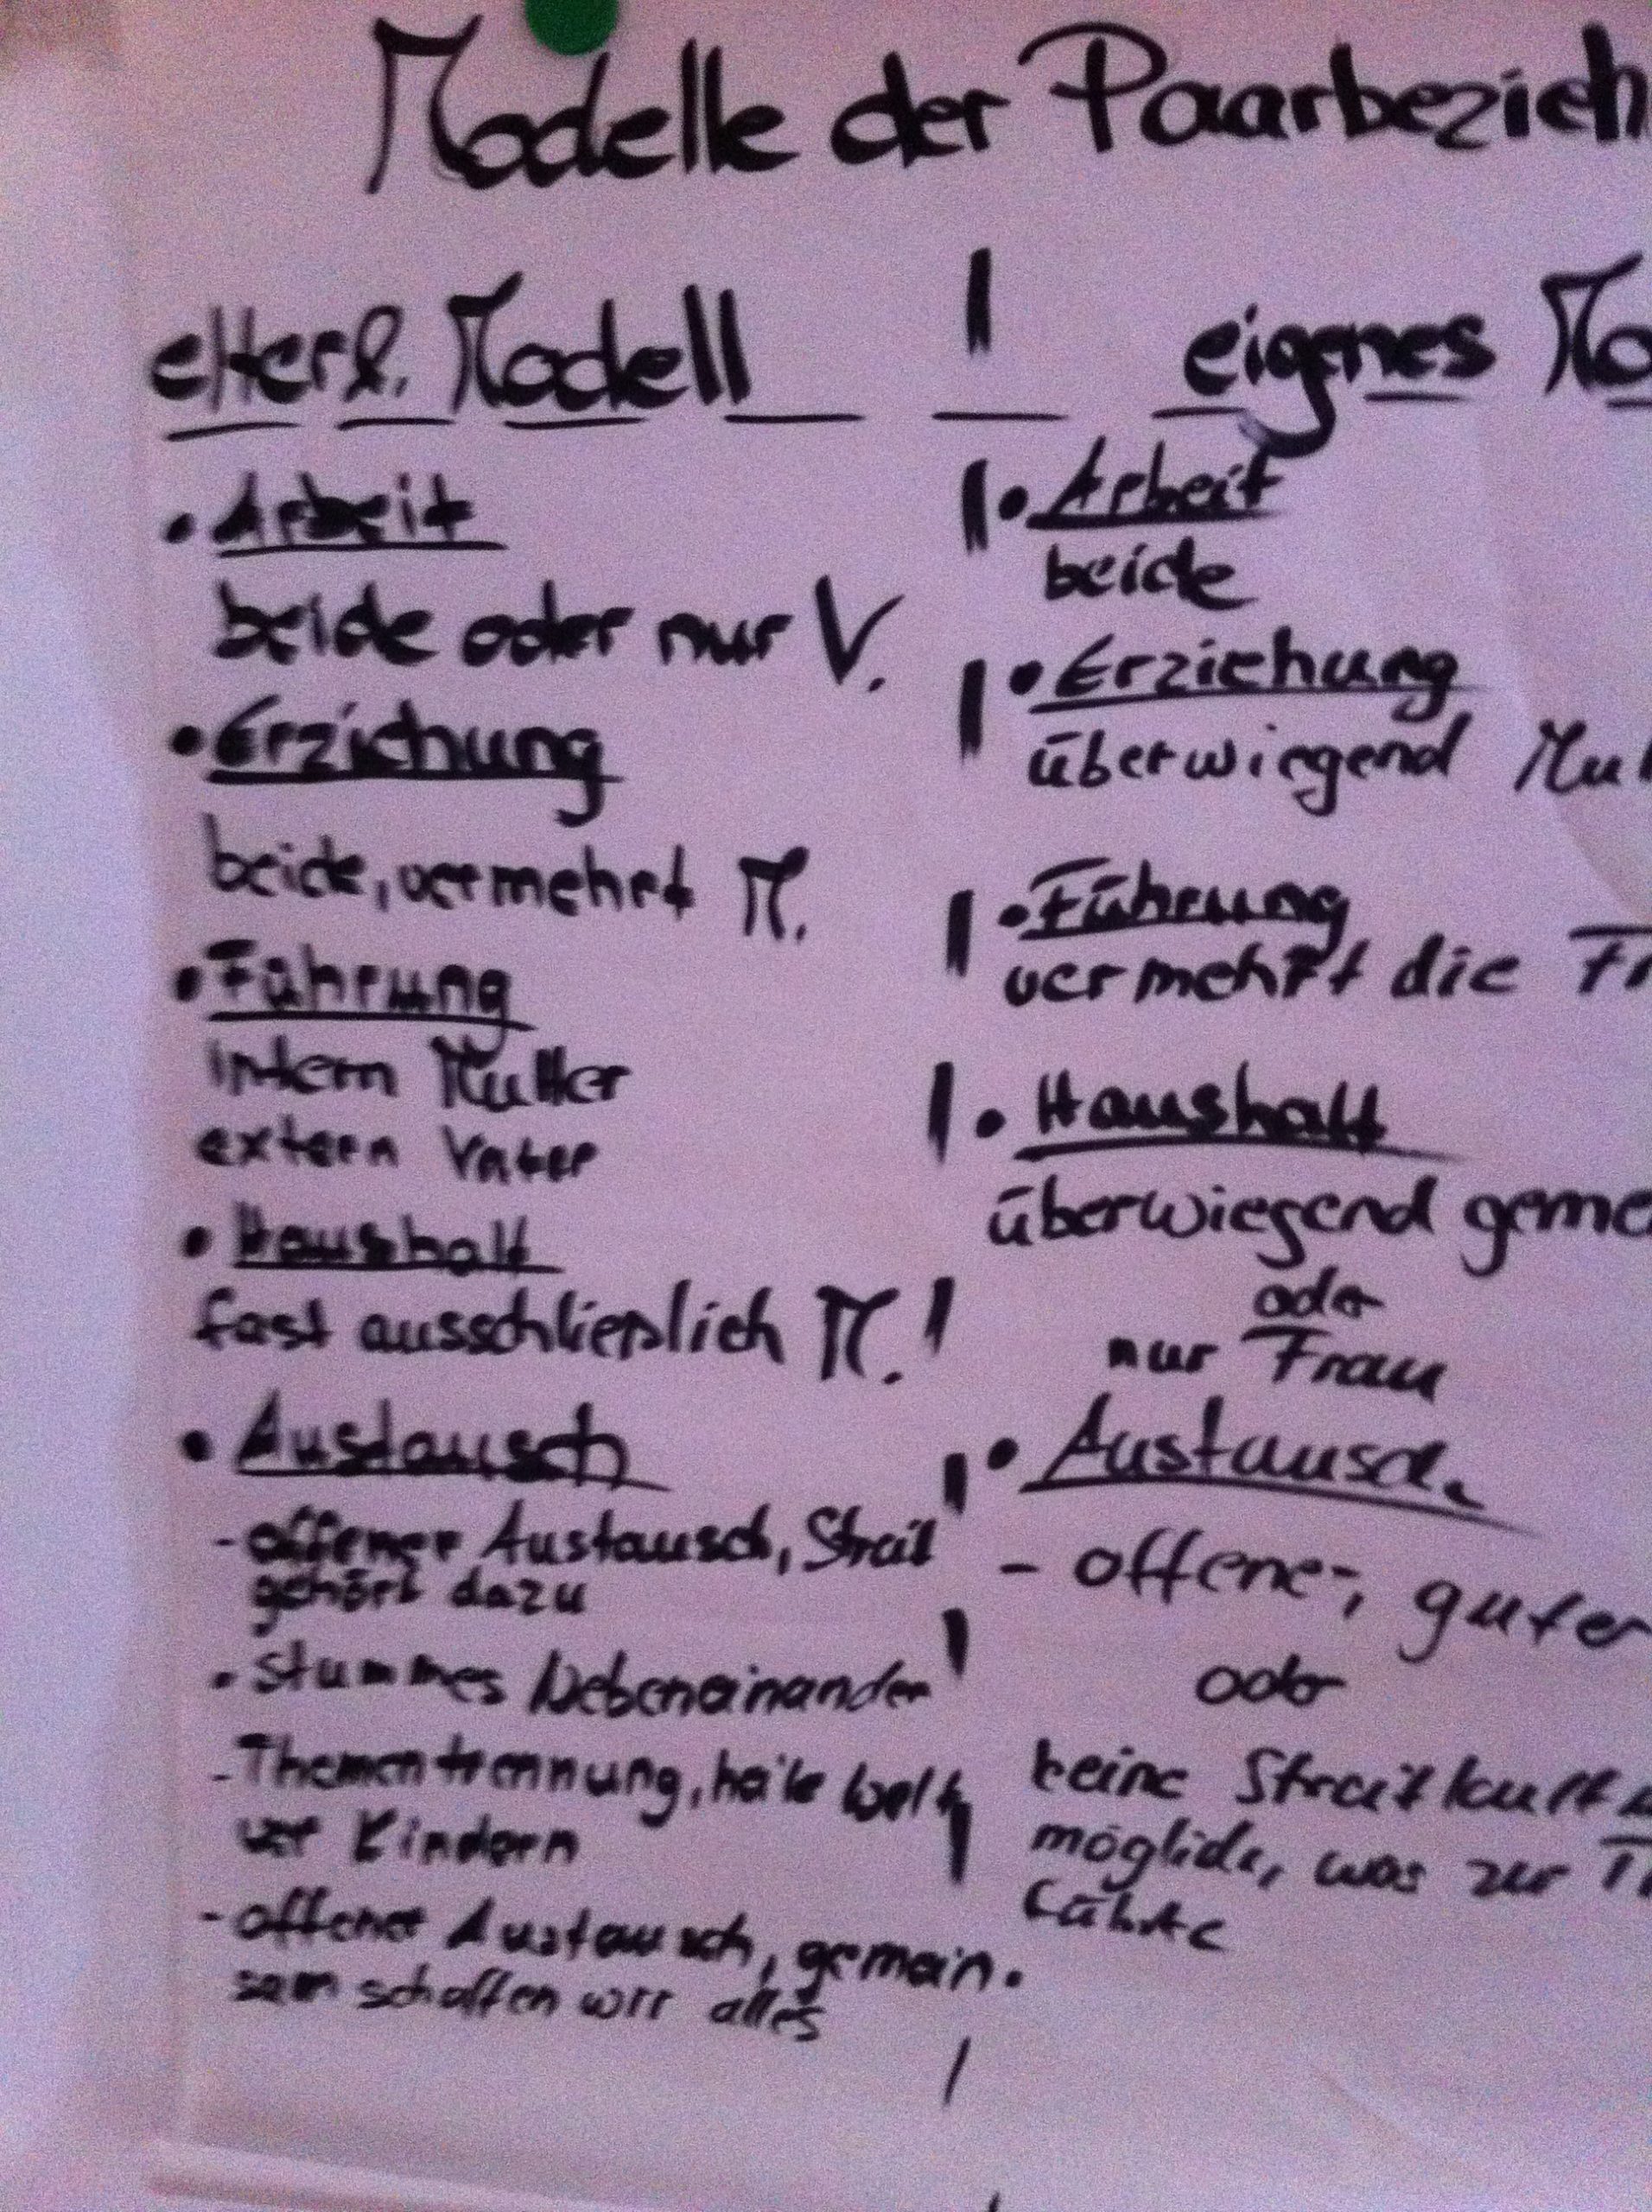 Modelle der Paarbezieh
elterl. Modell
• Arbeit
beide oder nur V.
• Erziehung
beide, vermehrt M.
• Führung
intern Mutter
extern Vater
• Haushalt
fast ausschließlich M.
• Austausch
- offener Austausch, Streit
gehört dazu
- stummes Nebeneinander
- Thementrennung, heile Welt
vor Kindern
- offener Austausch, gemein-
sam schaffen wir alles
eigenes Mo
• Arbeit
beide
• Erziehung
überwiegend Mut
• Führung
vermehrt die Fr
• Haushalt
überwiegend geme
oder
nur Frau
• Austausch
- offener, guter
oder
keine Streitkult
möglich, was zur T
führte